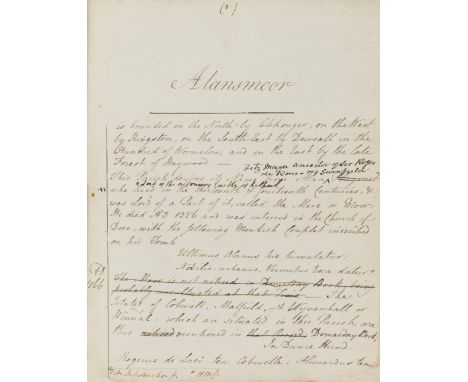 (1)
Alansmoor
is bounded on the North by Clehonger, on the West
by Kingston, on the South East by Dewsall in the
Hundred of Wormelow, and on the East by the late
Forest of Haywood —
Fitz Maun ancestor of Sir Roger
This Parish
who lived in the Thirteenth & Fourteenth Centuries, &
was Lord of a Part of it, called the More or Moor.
He died AD 1326 and was interred in the Church of
Dore, with the following Monkish Couplet inscribed
on his Tomb
Ultimus Alanus hic tumulatur
Nobilis, urbanus, Vermibus Esca datur.
The Moor is not noticed in Domesday Book, being
probably at that Time. — The
Estates of Cobwell, Malfield, Wyvenhall or
Winnal, which are situated in this Parish, are
thus noticed mentioned in that Record, Domesday Book,
In Dunre Hund.
Rogerus de Laci ten. Cobewelle: Alwardus